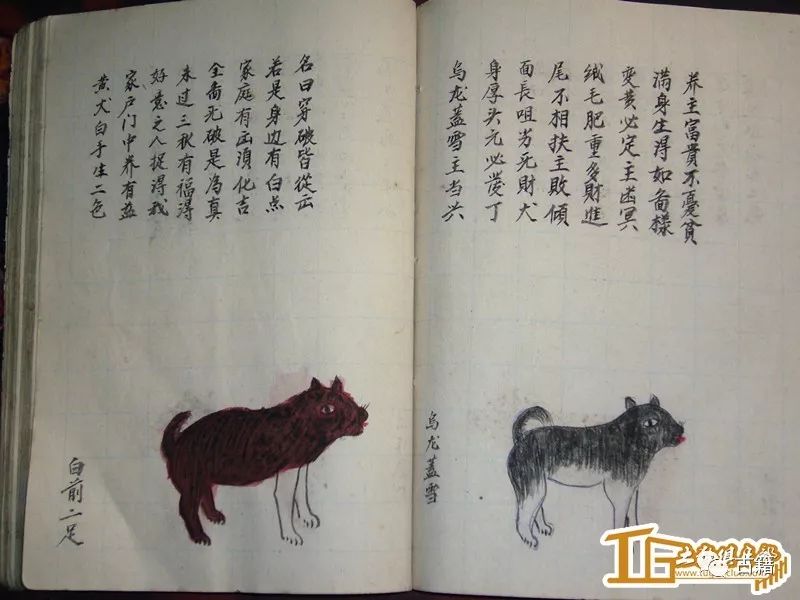 黄犬白手生二色
家户门中养有益
好意之人捉得我
未过三秋有福得
全啚无破是為真
家庭有凶須化吉
若是身边有白点
名曰穿破皆從云
白前二足
乌龙蓋雪主当兴
身厚头元必發丁
面長咀死財犬
尾不相扶主敗傾
绒毛肥重多財進
变黄必定主凶冥
满身生得如啚樣
养主富貴不憂貧
乌龙蓋雪
古籍